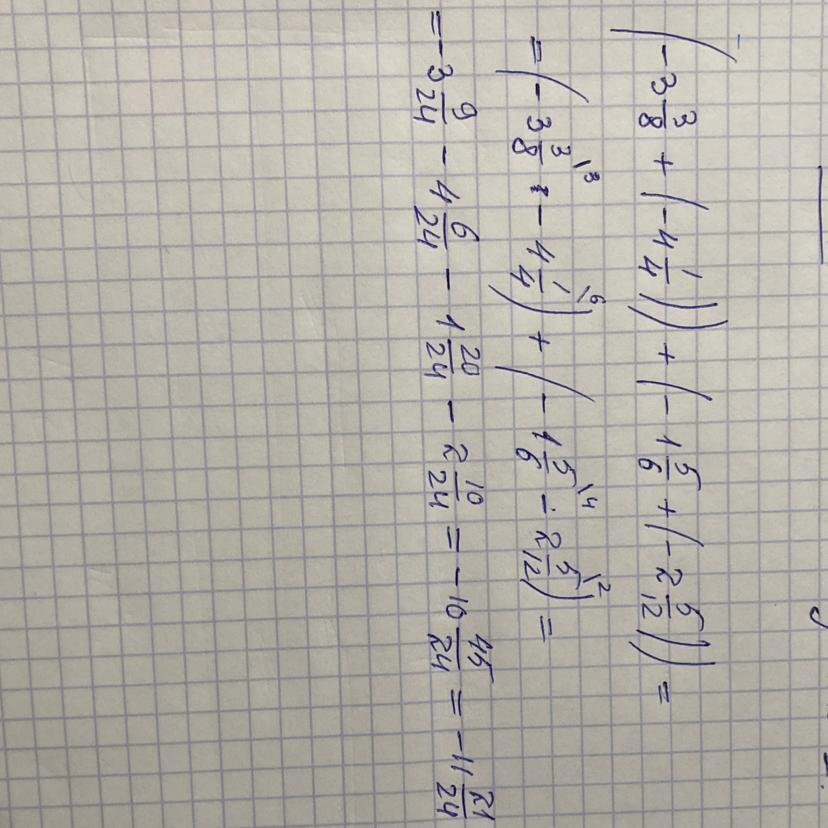 (-3 3/8 + (-4 1/4)) + (-1 5/6 + (-2 5/12)) =
= (-3 3/8 \3 - 4 1/4 \6) + (-1 5/6 \4 - 2 5/12 \2) =
= -3 9/24 - 4 6/24 - 1 20/24 - 2 10/24 = -10 45/24 = -11 21/24